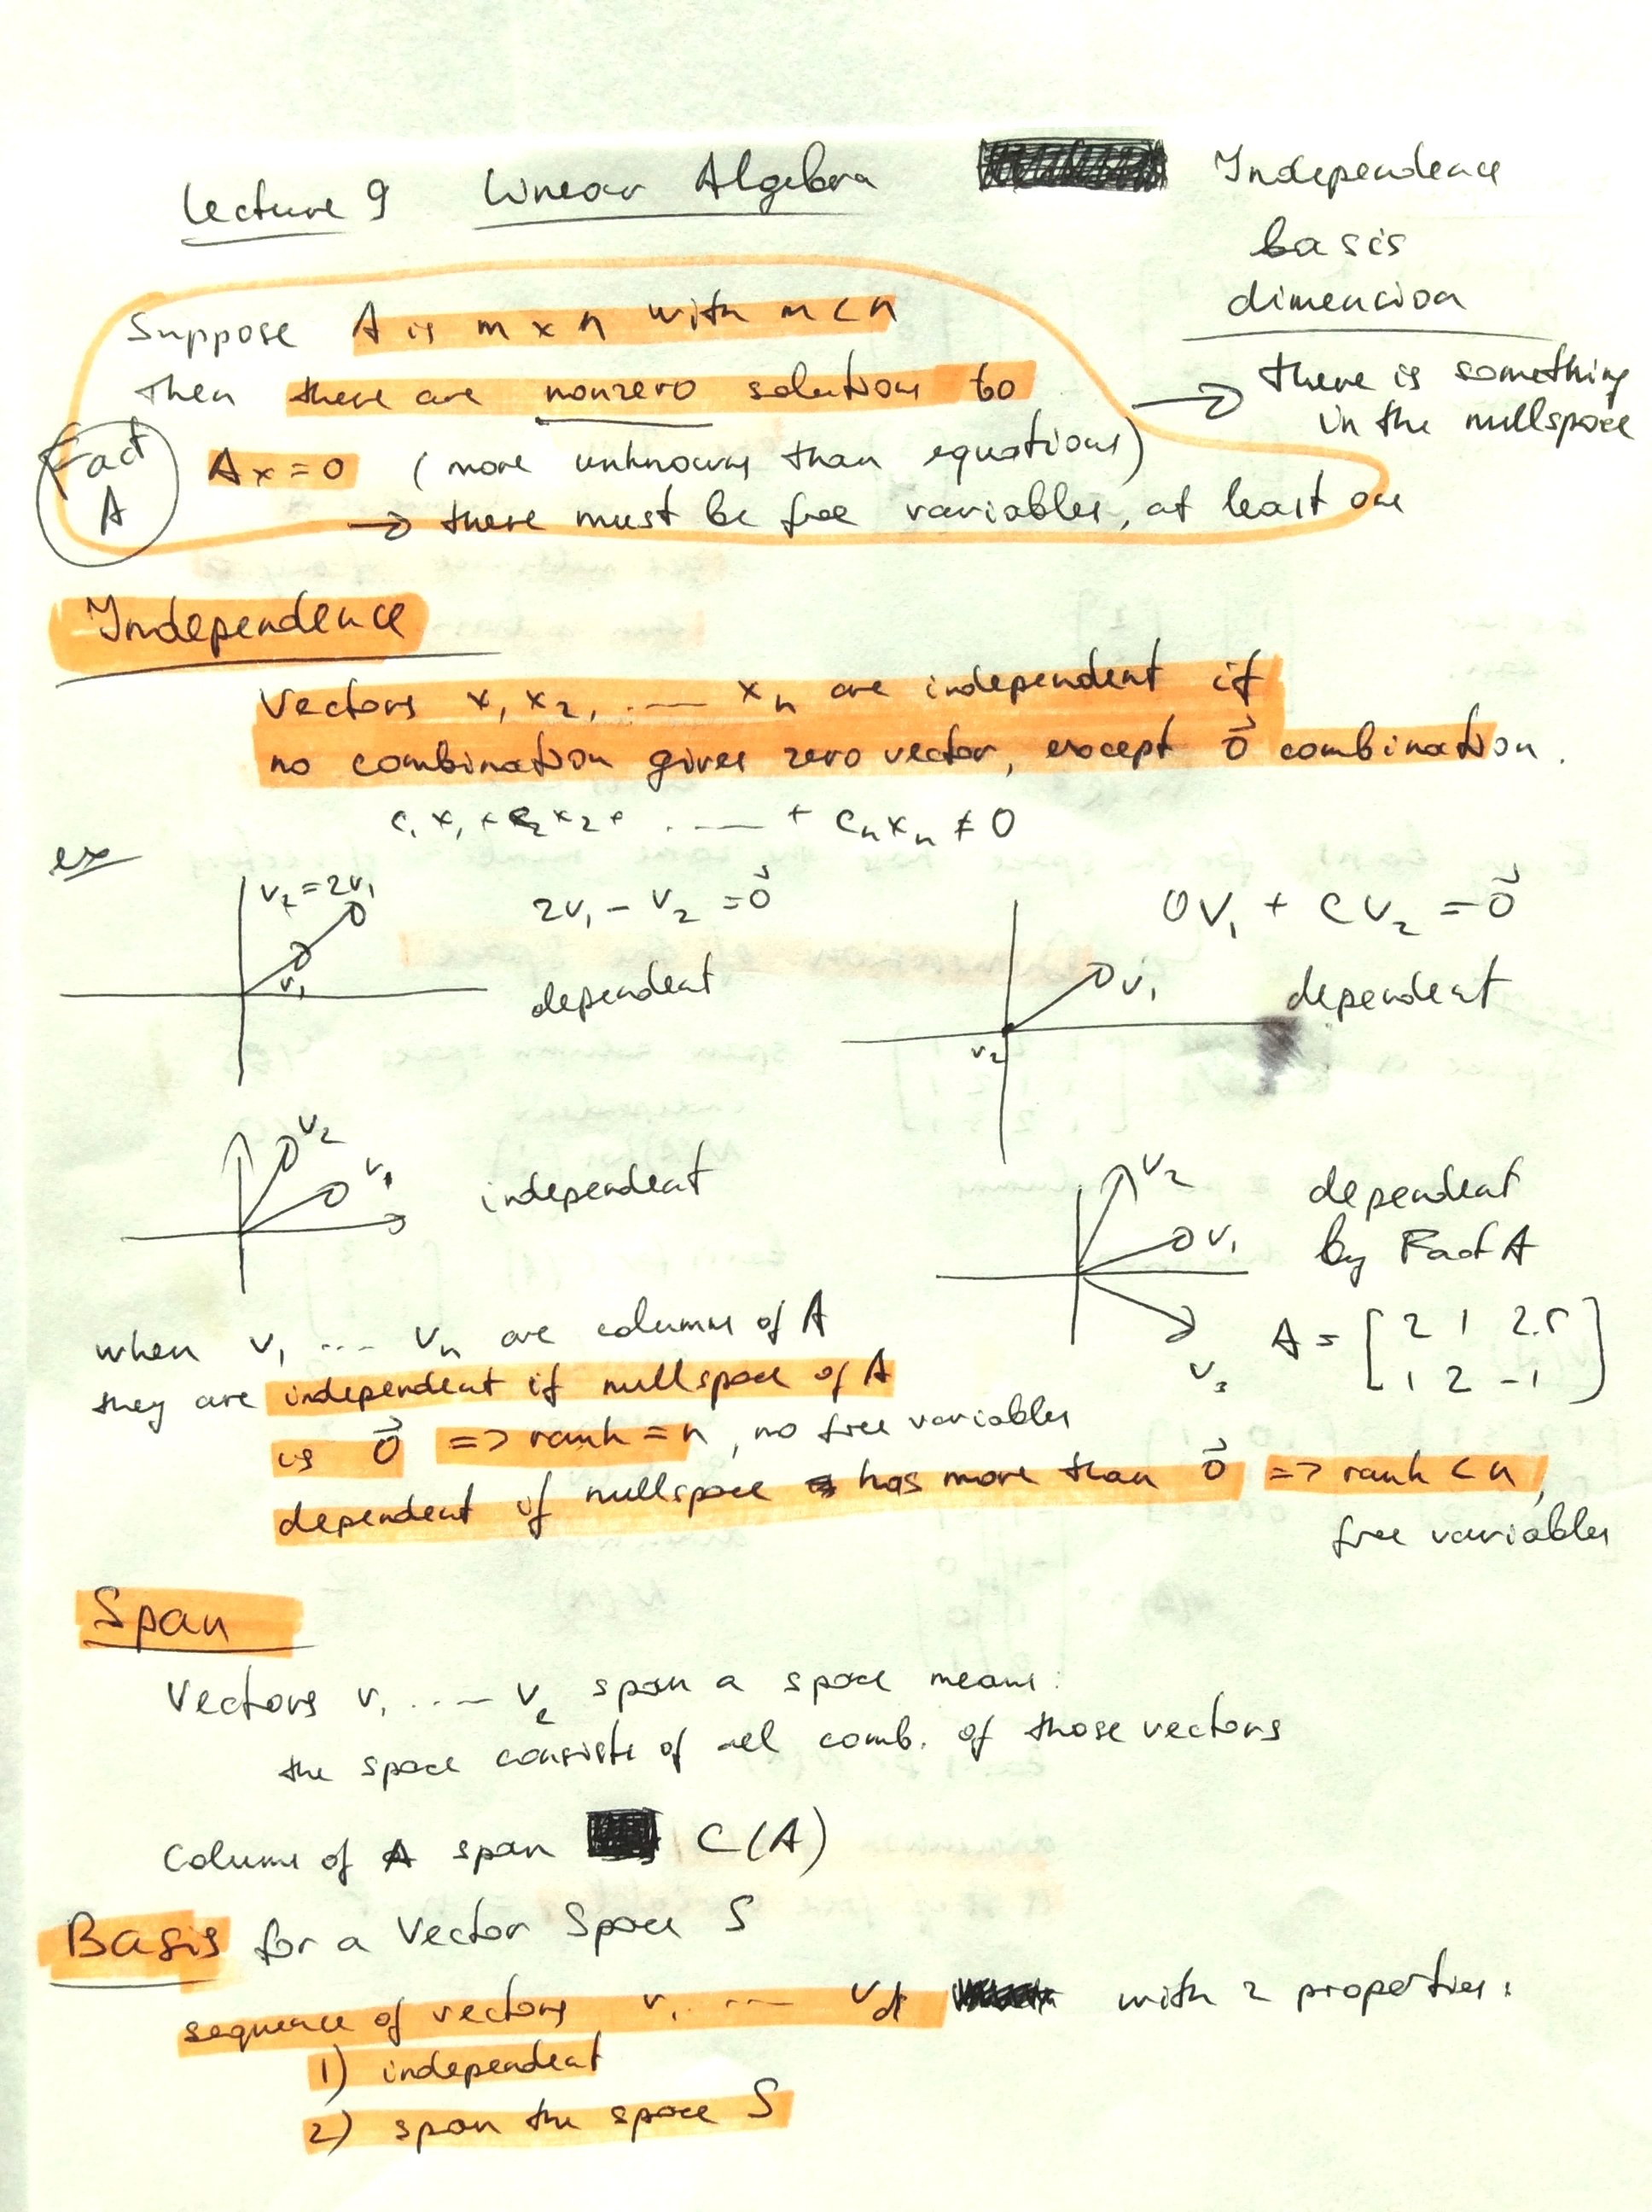 Lecture 9 Linear Algebra
Independence
basis
dimension
Suppose A is m x n with m < n
Then there are nonzero solutions to
Ax = 0 (more unknowns than equations)
→ there must be free variables, at least one
Fact
A
→ there is something
in the nullspace
Independence
Vectors x₁ x₂, ..... xₙ are independent if
no combination gives zero vector, except 0⃗ combination.
c₁x₁ + c₂x₂ + ..... + cₙxₙ ≠ 0
ex
v₂ = 2v₁
v₁
2v₁ - v₂ = 0⃗
dependent
0v₁ + cv₂ = 0⃗
v₁
v₂
dependent
v₂
v₁
independent
v₂
v₁
v₃
dependent
by Fact A
A = [2 1 2.5
1 2 -1]
when v₁ ... vₙ are columns of A
they are independent if nullspace of A
is 0⃗ => rank = n, no free variables
dependent if nullspace has more than 0⃗ => rank < n,
free variables
Span
Vectors v₁ ..... vₑ span a space means:
the space consists of all comb. of those vectors
Columns of A span C(A)
Basis for a Vector Space S
sequence of vectors v₁ .... vd with 2 properties:
1) independent
2) span the space S